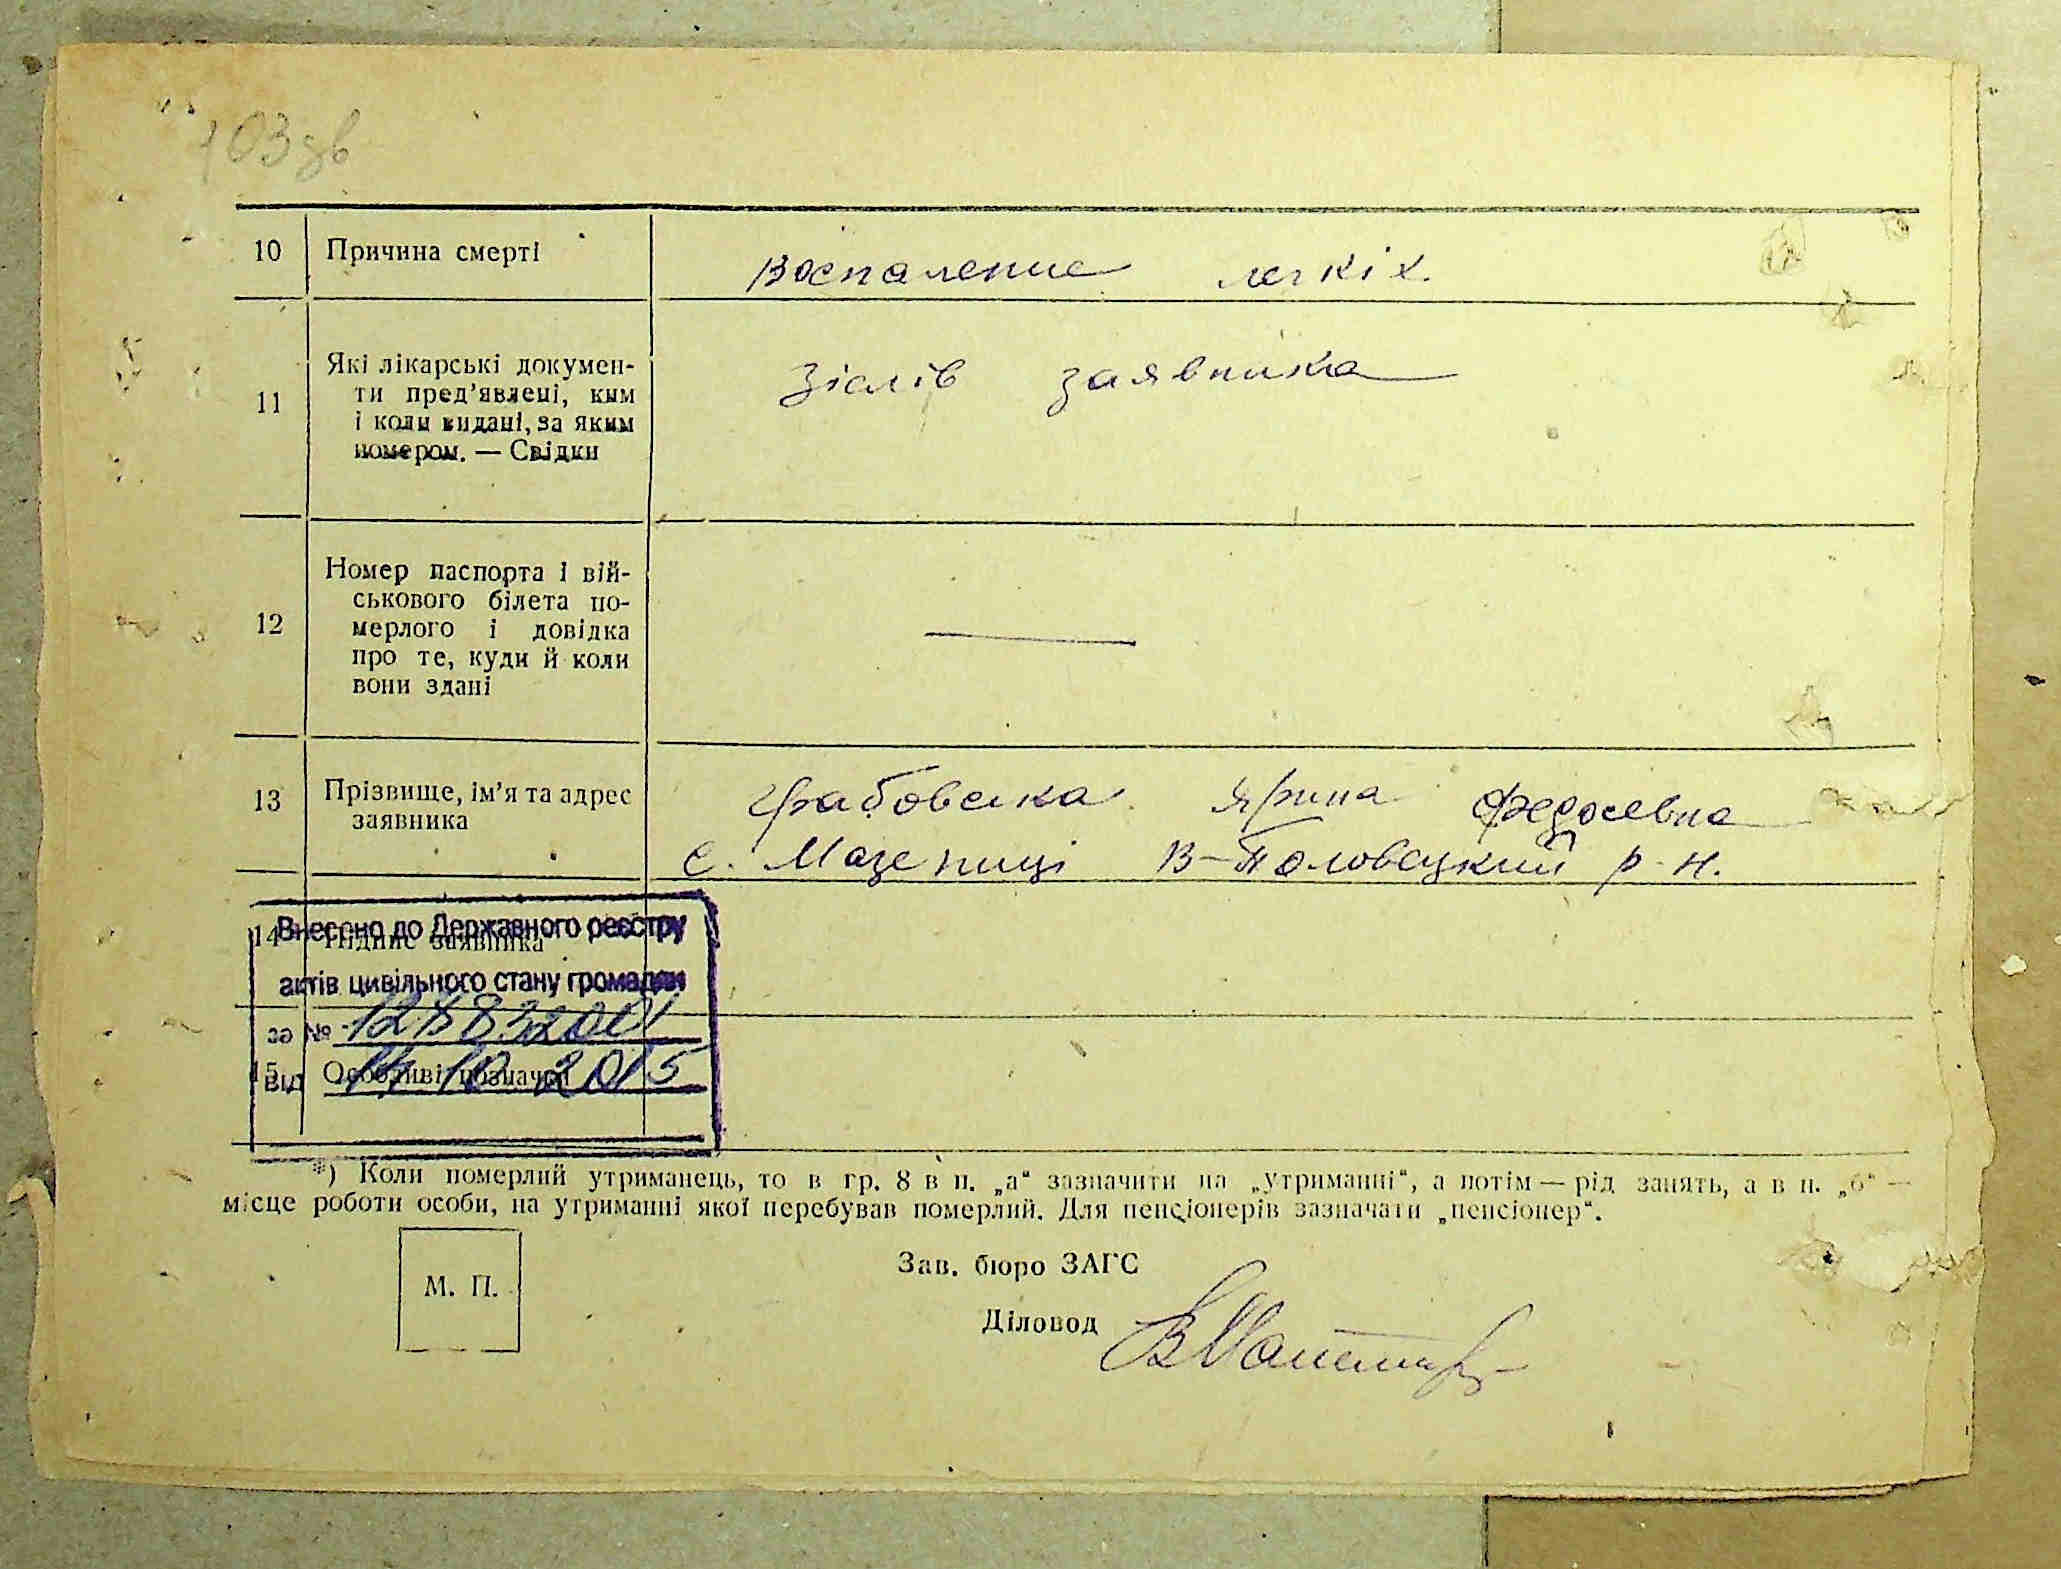 103зв
10 Причина смерті Воспаление легкіх.
11 Які лікарські докумен-
ти пред’явлені, ким
і коли видані, за яким
номером. — Свідки
Зіслів заявника
12 Номер паспорта і вій-
ськового білета по-
мерлого і довідка
про те, куди й коли
вони здані
—
13 Прізвище, ім’я та адрес
заявника
Грабовська Ярина Федосевна
с. Мазепинці В-Половецкий р-н.
14 Підпис заявника
Внесено до Державного реєстру
актів цивільного стану громадян
за №
15 Особливі позначки
від 14 10 2015
*) Коли померлий утриманець, то в гр. 8 в п. „а“ зазначити на „утриманні“, а потім — рід занять, а в п. „б“ —
місце роботи особи, на утриманні якої перебував померлий. Для пенсіонерів зазначати „пенсіонер“.
М. П.
Зав. бюро ЗАГС
Діловод